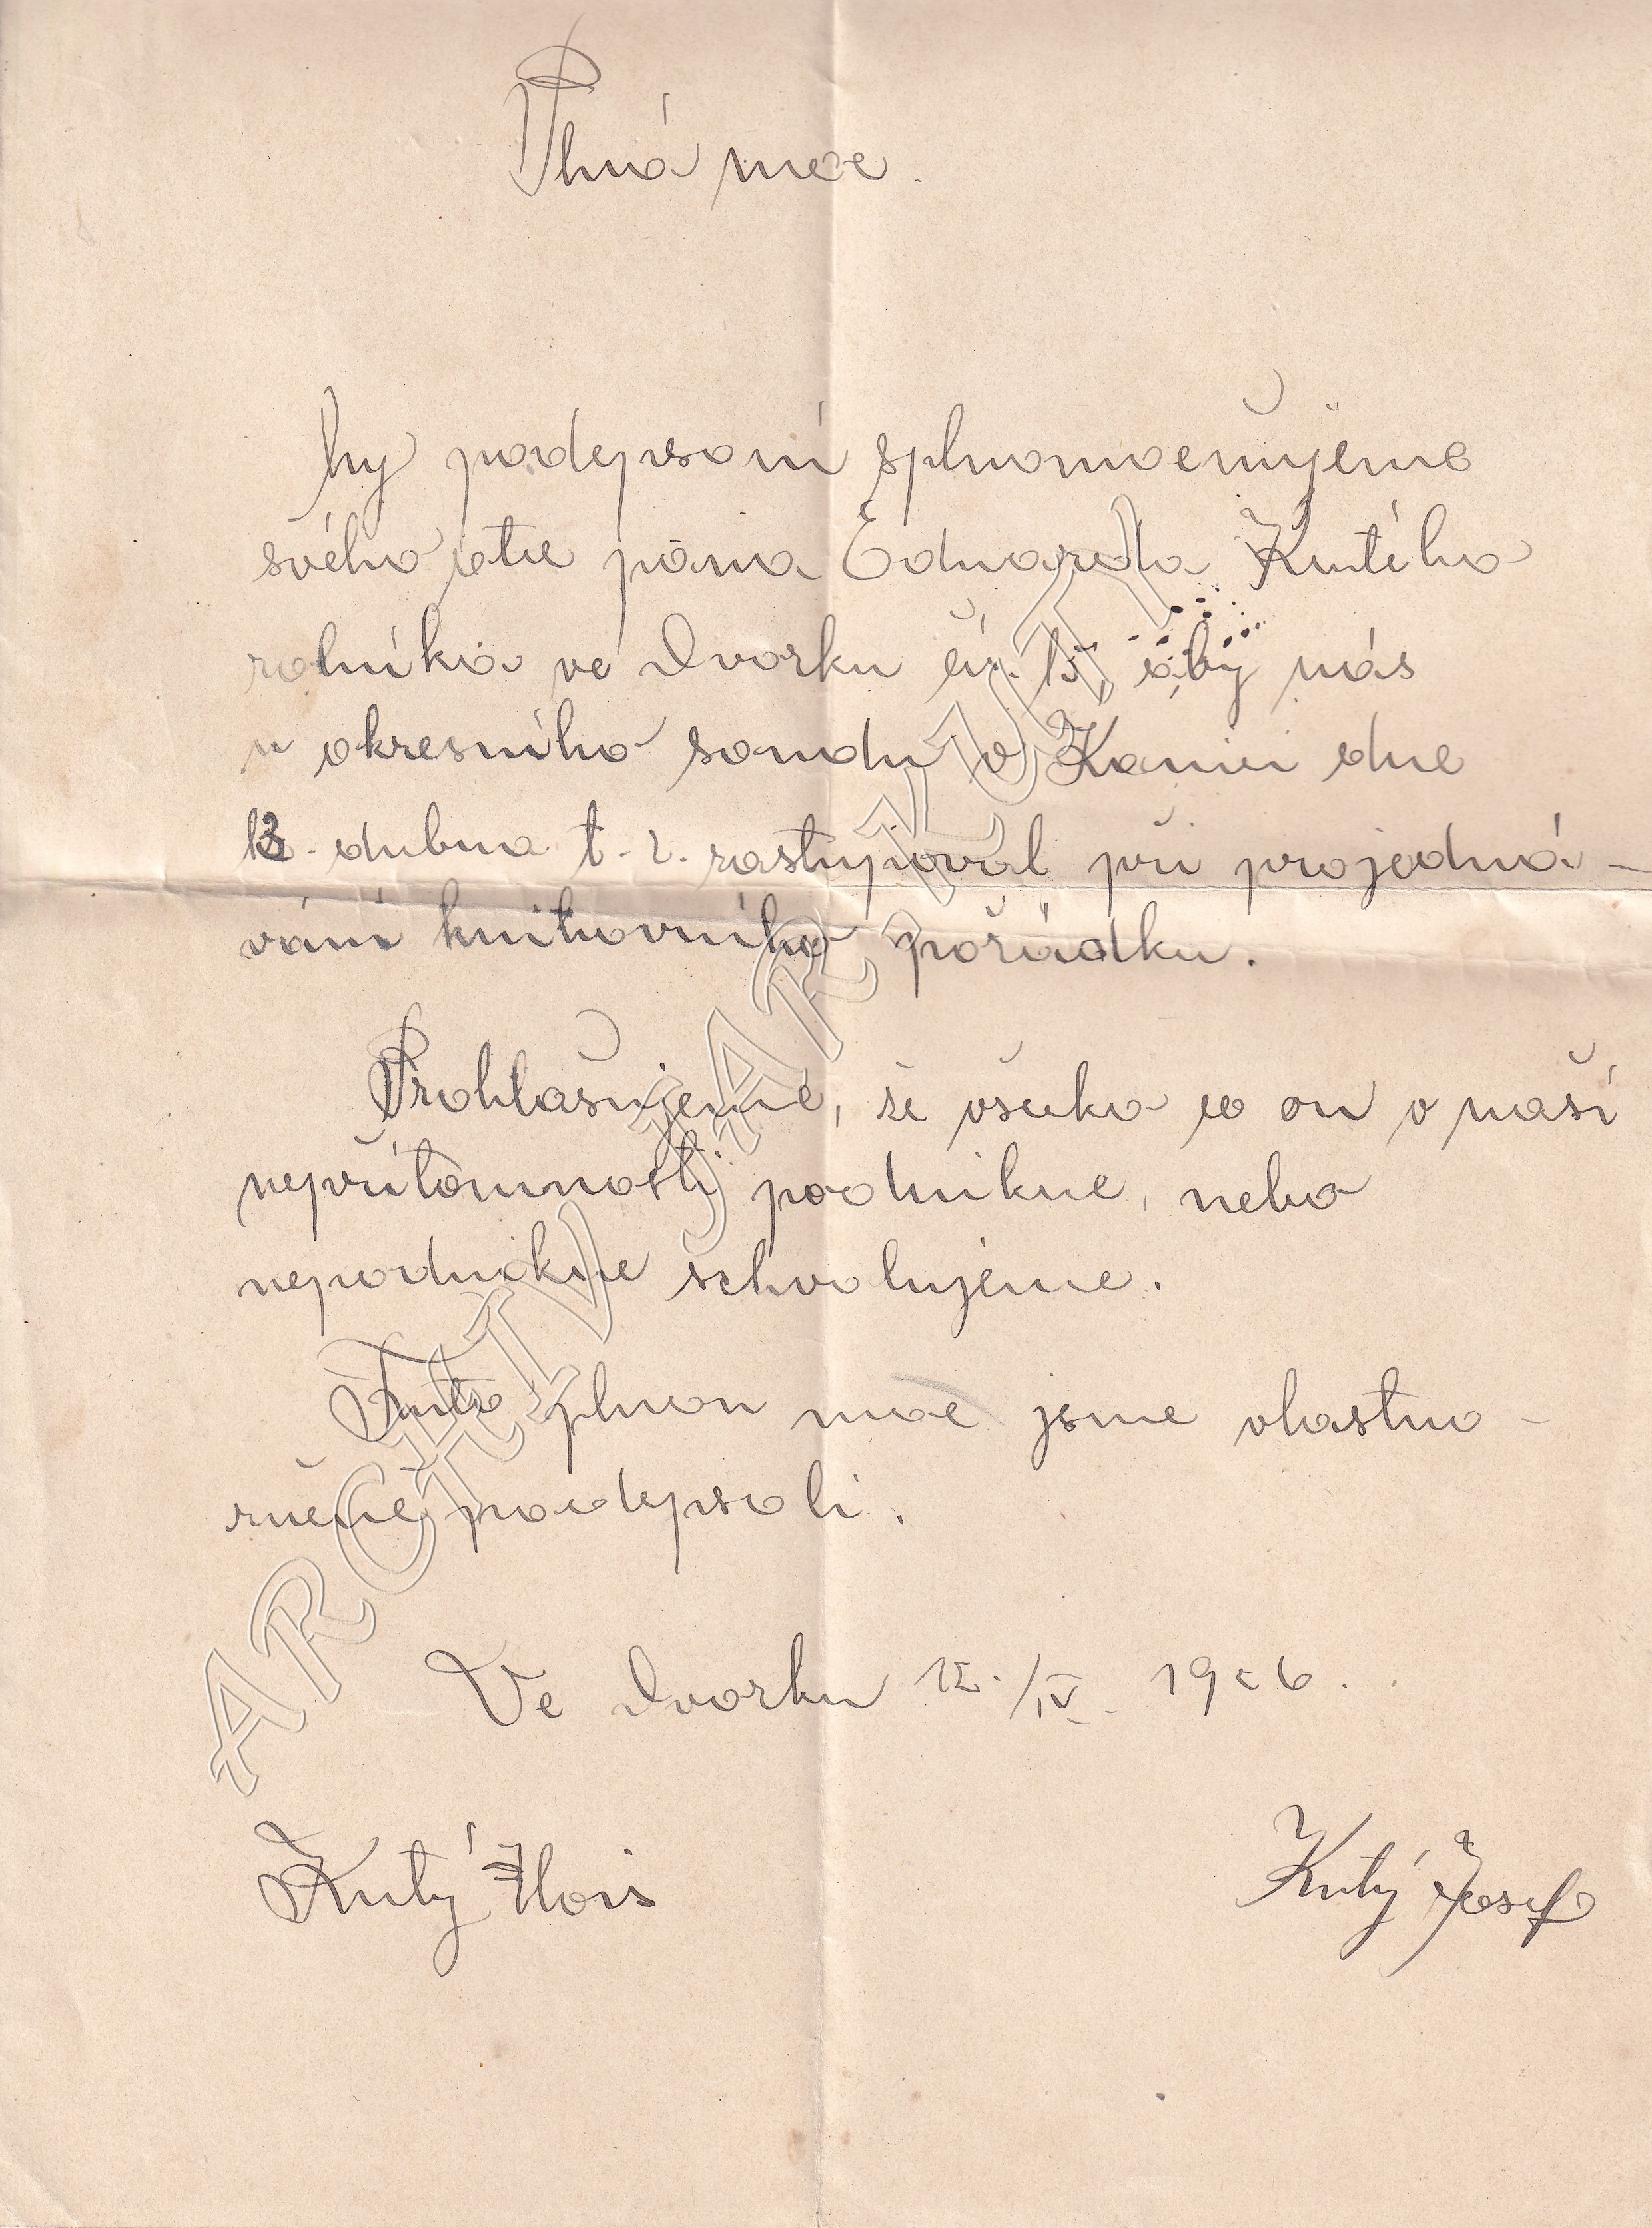 Plná moc.
My podepsaní splnomocňujeme
svého otce pana Eduarda Kutého
rolníka ve Dvorku čís. 15, aby nás
u okresního soudu v Kamenici dne
13. dubna t. r. zastupoval při projedná-
vání knihovního pořádku.
Prohlašujeme, že všecko co on v naší
nepřítomnosti podnikne, nebo
nepodnikne schvalujeme.
Tuto plnou moc jsme vlastno-
ručně podepsali.
Ve Dvorku 12./IV. 1926.
Kutý Alois
Kutý Josef
ARCHIV JAR. KUTÝ